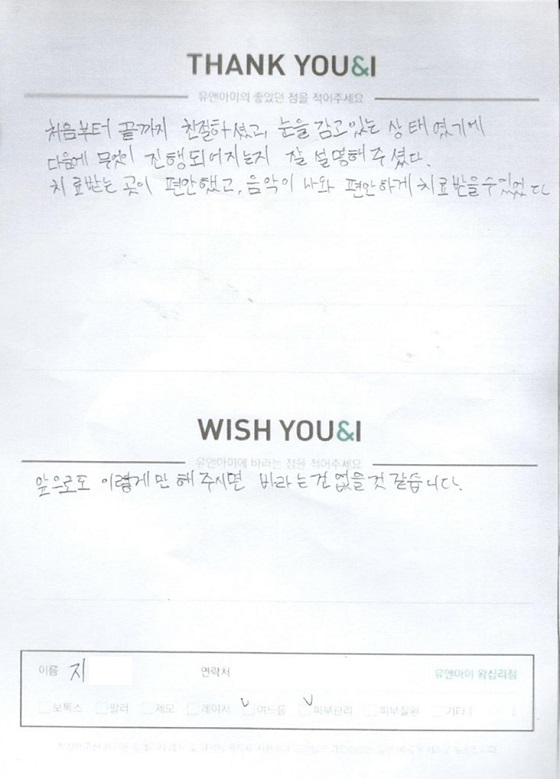 THANK YOU&I
유앤아이의 좋았던 점을 적어주세요
처음부터 끝까지 친절하셨고, 눈을 감고있는 상태였기에
다음에 무엇이 진행되어지는지 잘 설명해주셨다.
치료받는 곳이 편안했고, 음악이 나와 편안하게 치료받을수있었다
WISH YOU&I
유앤아이에 바라는 점을 적어주세요
앞으로도 이렇게만 해주시면 바라는건 없을것 같습니다.
이름 지 연락처 유앤아이 왕십리점
보톡스 필러 제모 레이저 여드름 피부관리 피부질환 기타